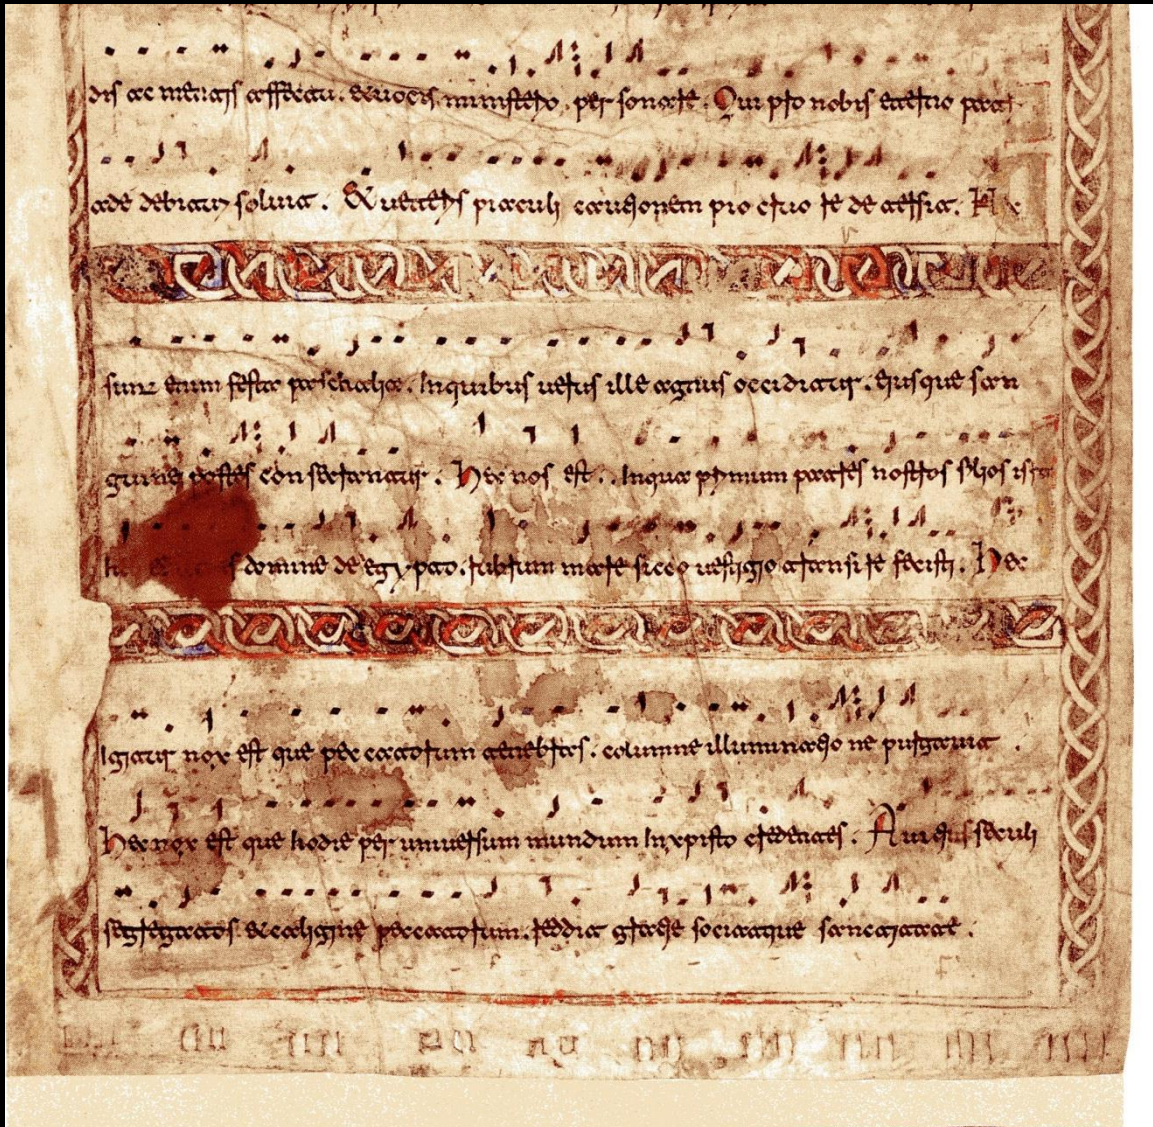 dis ac mentis affectu. et uocis ministerio. personare. Qui pro nobis eterno patri
ade debitum soluit. Et ueteris piaculi cautionem pio cruore detersit. Hec
sunt enim festa paschalia. In quibus uerus ille agnus occiditur. eiusque san
guine postes consecrantur. Hec nox est. In qua primum patres nostros filios isra
domine de egypto. rubrum mare sicco uestigio transire fecisti. Hec
Igitur nox est que peccatorum tenebras. columne illuminatione purgauit.
Hec nox est que hodie per uniuersum mundum In xpisto credentes. A uitiis seculi
segregatos et caligine peccatorum. reddit gratie sociatque sanctitate.